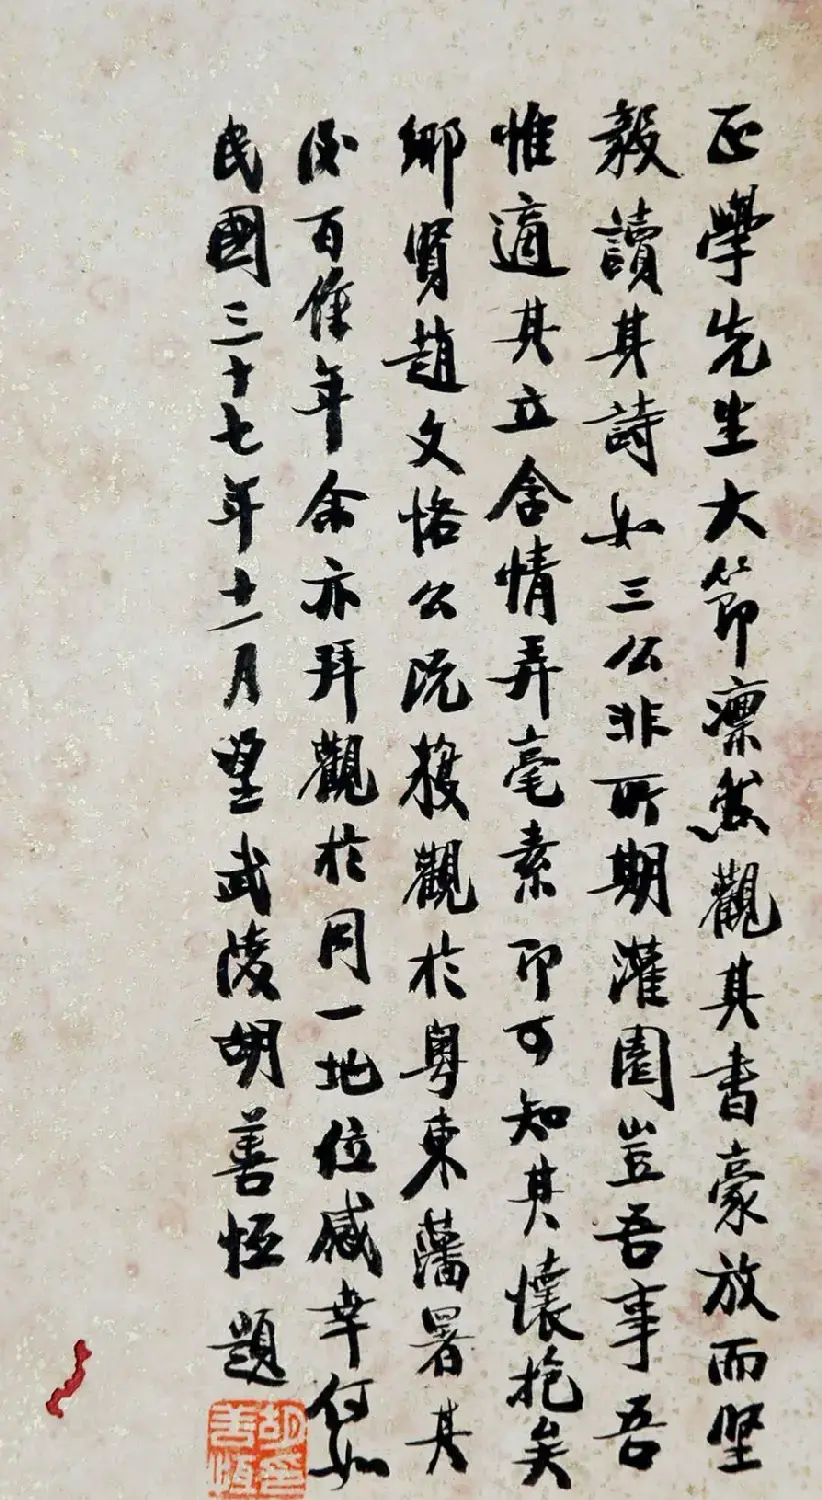 正學先生大節凜然觀其書豪放而堅
毅讀其詩如三公非所期灌園豈吾事吾
惟適其立舍情弄毫素即可知其懷抱矣
鄉賢趙文恪公既獲觀於粵東藩署其
後百餘年余亦拜觀於同一地位感幸何如
民國三十七年十一月望武陵胡善恆題
胡善恆